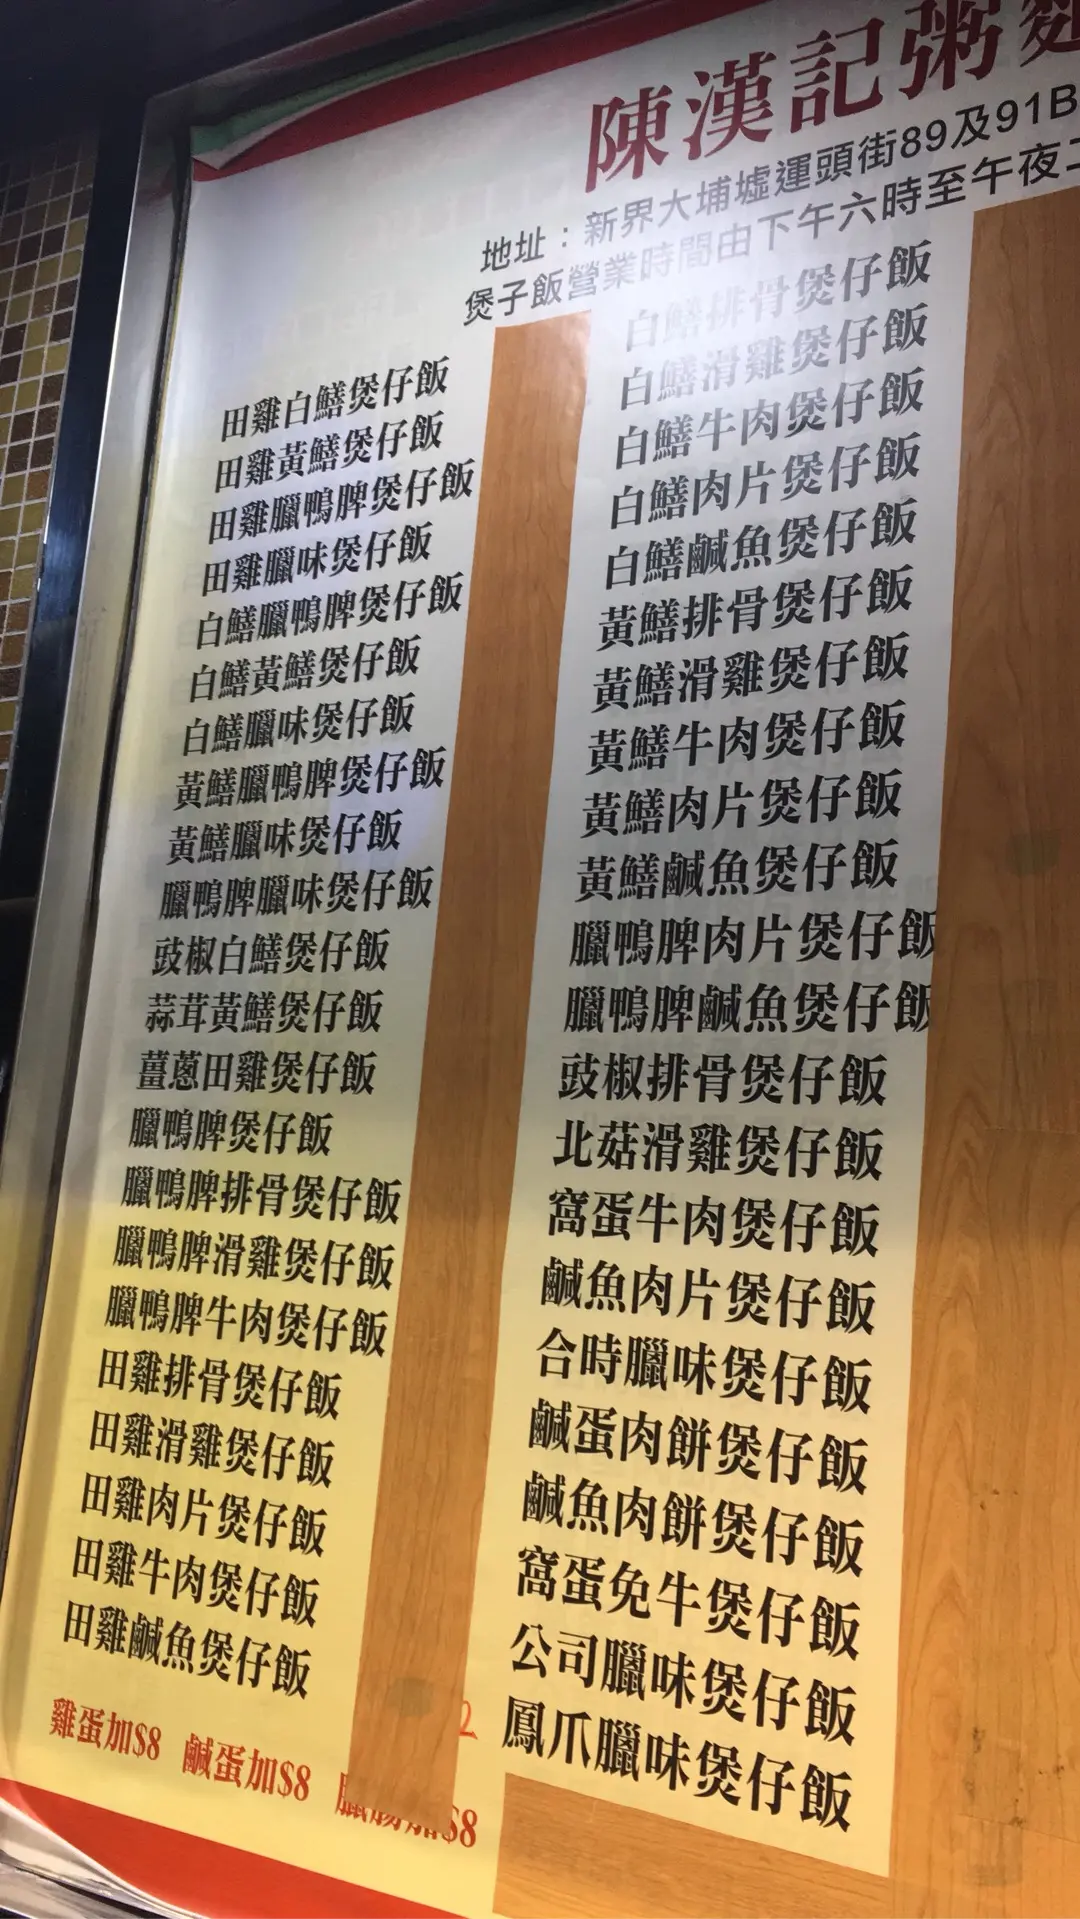 陳漢記粥麵
地址：新界大埔墟運頭街89及91B
煲子飯營業時間由下午六時至午夜二
田雞白鱔煲仔飯
田雞黃鱔煲仔飯
田雞臘鴨脾煲仔飯
田雞臘味煲仔飯
白鱔臘鴨脾煲仔飯
白鱔黃鱔煲仔飯
白鱔臘味煲仔飯
黃鱔臘鴨脾煲仔飯
黃鱔臘味煲仔飯
臘鴨脾臘味煲仔飯
豉椒白鱔煲仔飯
蒜茸黃鱔煲仔飯
薑蔥田雞煲仔飯
臘鴨脾煲仔飯
臘鴨脾排骨煲仔飯
臘鴨脾滑雞煲仔飯
臘鴨脾牛肉煲仔飯
田雞排骨煲仔飯
田雞滑雞煲仔飯
田雞肉片煲仔飯
田雞牛肉煲仔飯
田雞鹹魚煲仔飯
白鱔排骨煲仔飯
白鱔滑雞煲仔飯
白鱔牛肉煲仔飯
白鱔肉片煲仔飯
白鱔鹹魚煲仔飯
黃鱔排骨煲仔飯
黃鱔滑雞煲仔飯
黃鱔牛肉煲仔飯
黃鱔肉片煲仔飯
黃鱔鹹魚煲仔飯
臘鴨脾肉片煲仔飯
臘鴨脾鹹魚煲仔飯
豉椒排骨煲仔飯
北菇滑雞煲仔飯
窩蛋牛肉煲仔飯
鹹魚肉片煲仔飯
合時臘味煲仔飯
鹹蛋肉餅煲仔飯
鹹魚肉餅煲仔飯
窩蛋免牛煲仔飯
公司臘味煲仔飯
鳳爪臘味煲仔飯
2
雞蛋加$8 鹹蛋加$8 臘腸加$8